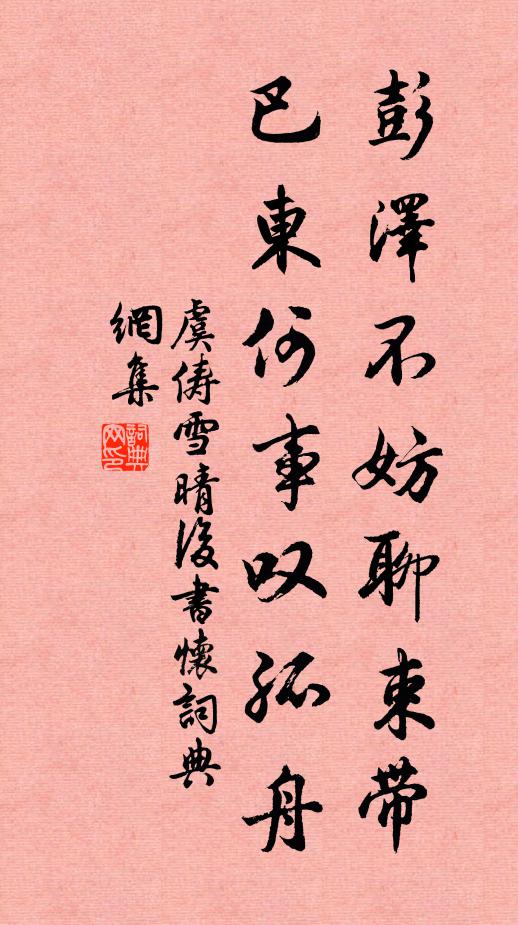 彭澤不妨聊束帶
巴東何事叹孤舟
虞俦雪晴後書懷詞典
網集
詞典网印